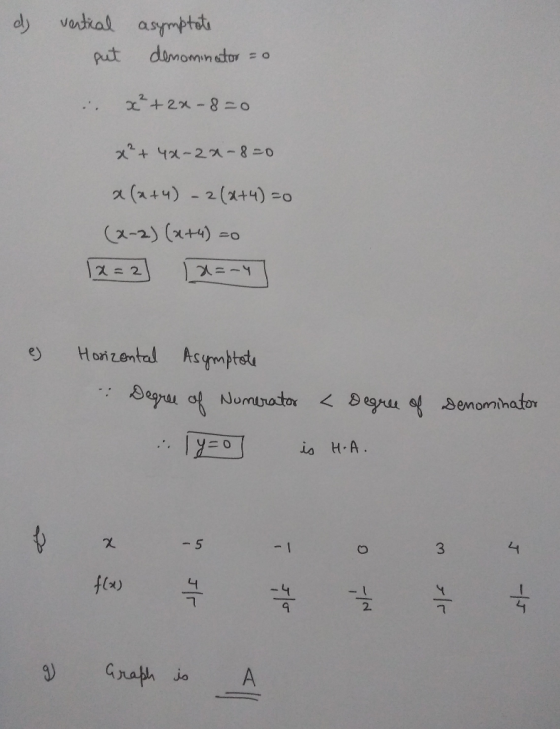 d) vertical asymptote
put denominator = 0
∴ x² + 2x - 8 = 0
x² + 4x - 2x - 8 = 0
x(x+4) - 2(x+4) = 0
(x-2)(x+4) = 0
x = 2 x = -4
e) Horizontal Asymptote
∵ Degree of Numerator < Degree of Denominator
∴ y = 0 is H.A.
f) x -5 -1 0 3 4
f(x) 4/7 -4/9 -1/2 4/7 1/4
g) Graph is A